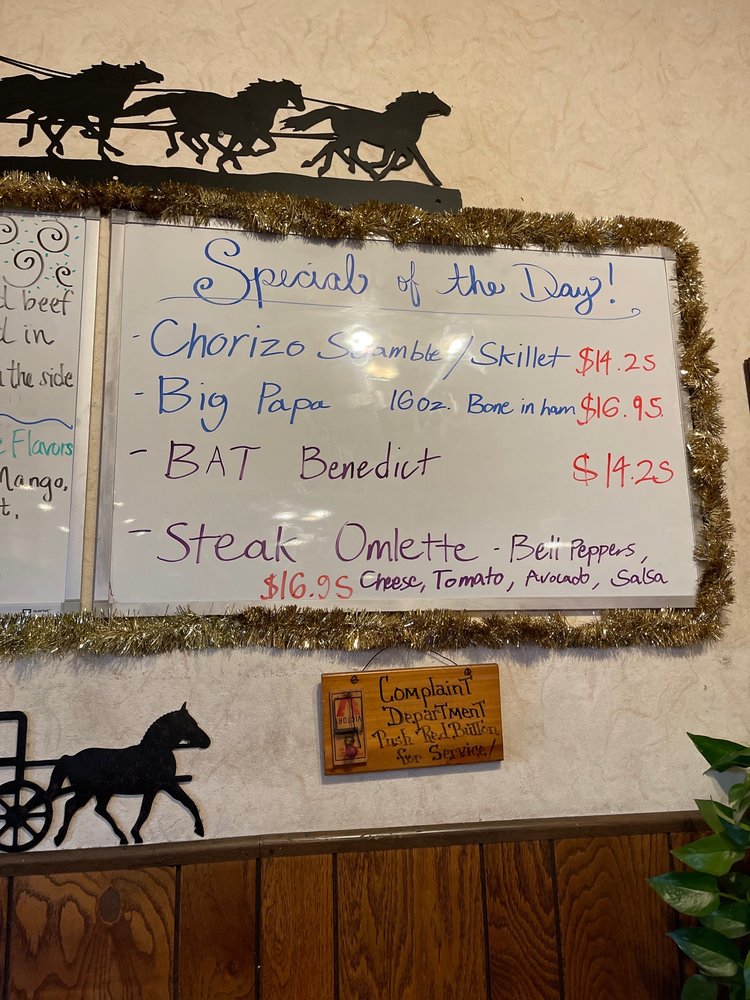 d beef
d in
the side
Flavors
Mango,
t.
Special of the Day!
- Chorizo Scramble / Skillet $14.25
- Big Papa 16oz. Bone in ham $16.95
- BAT Benedict $14.25
- Steak Omlette - Bell Peppers,
$16.95 Cheese, Tomato, Avocado, Salsa
Complaint
Department
Push Red Button
for Service!
VICTOR